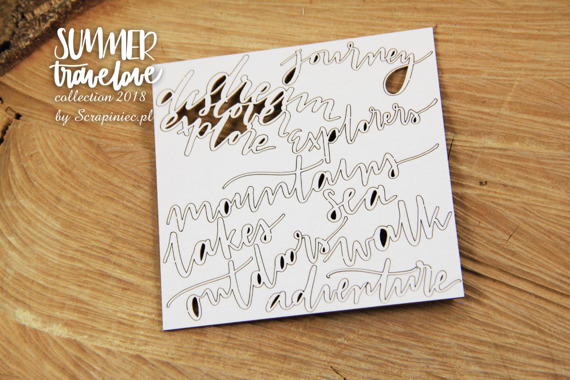 SUMMER
travelove
collection 2018
by Scrapiniec.pl
journey
dream
discover
explore explorers
mountains
sea
lakes
walk
outdoors
adventure